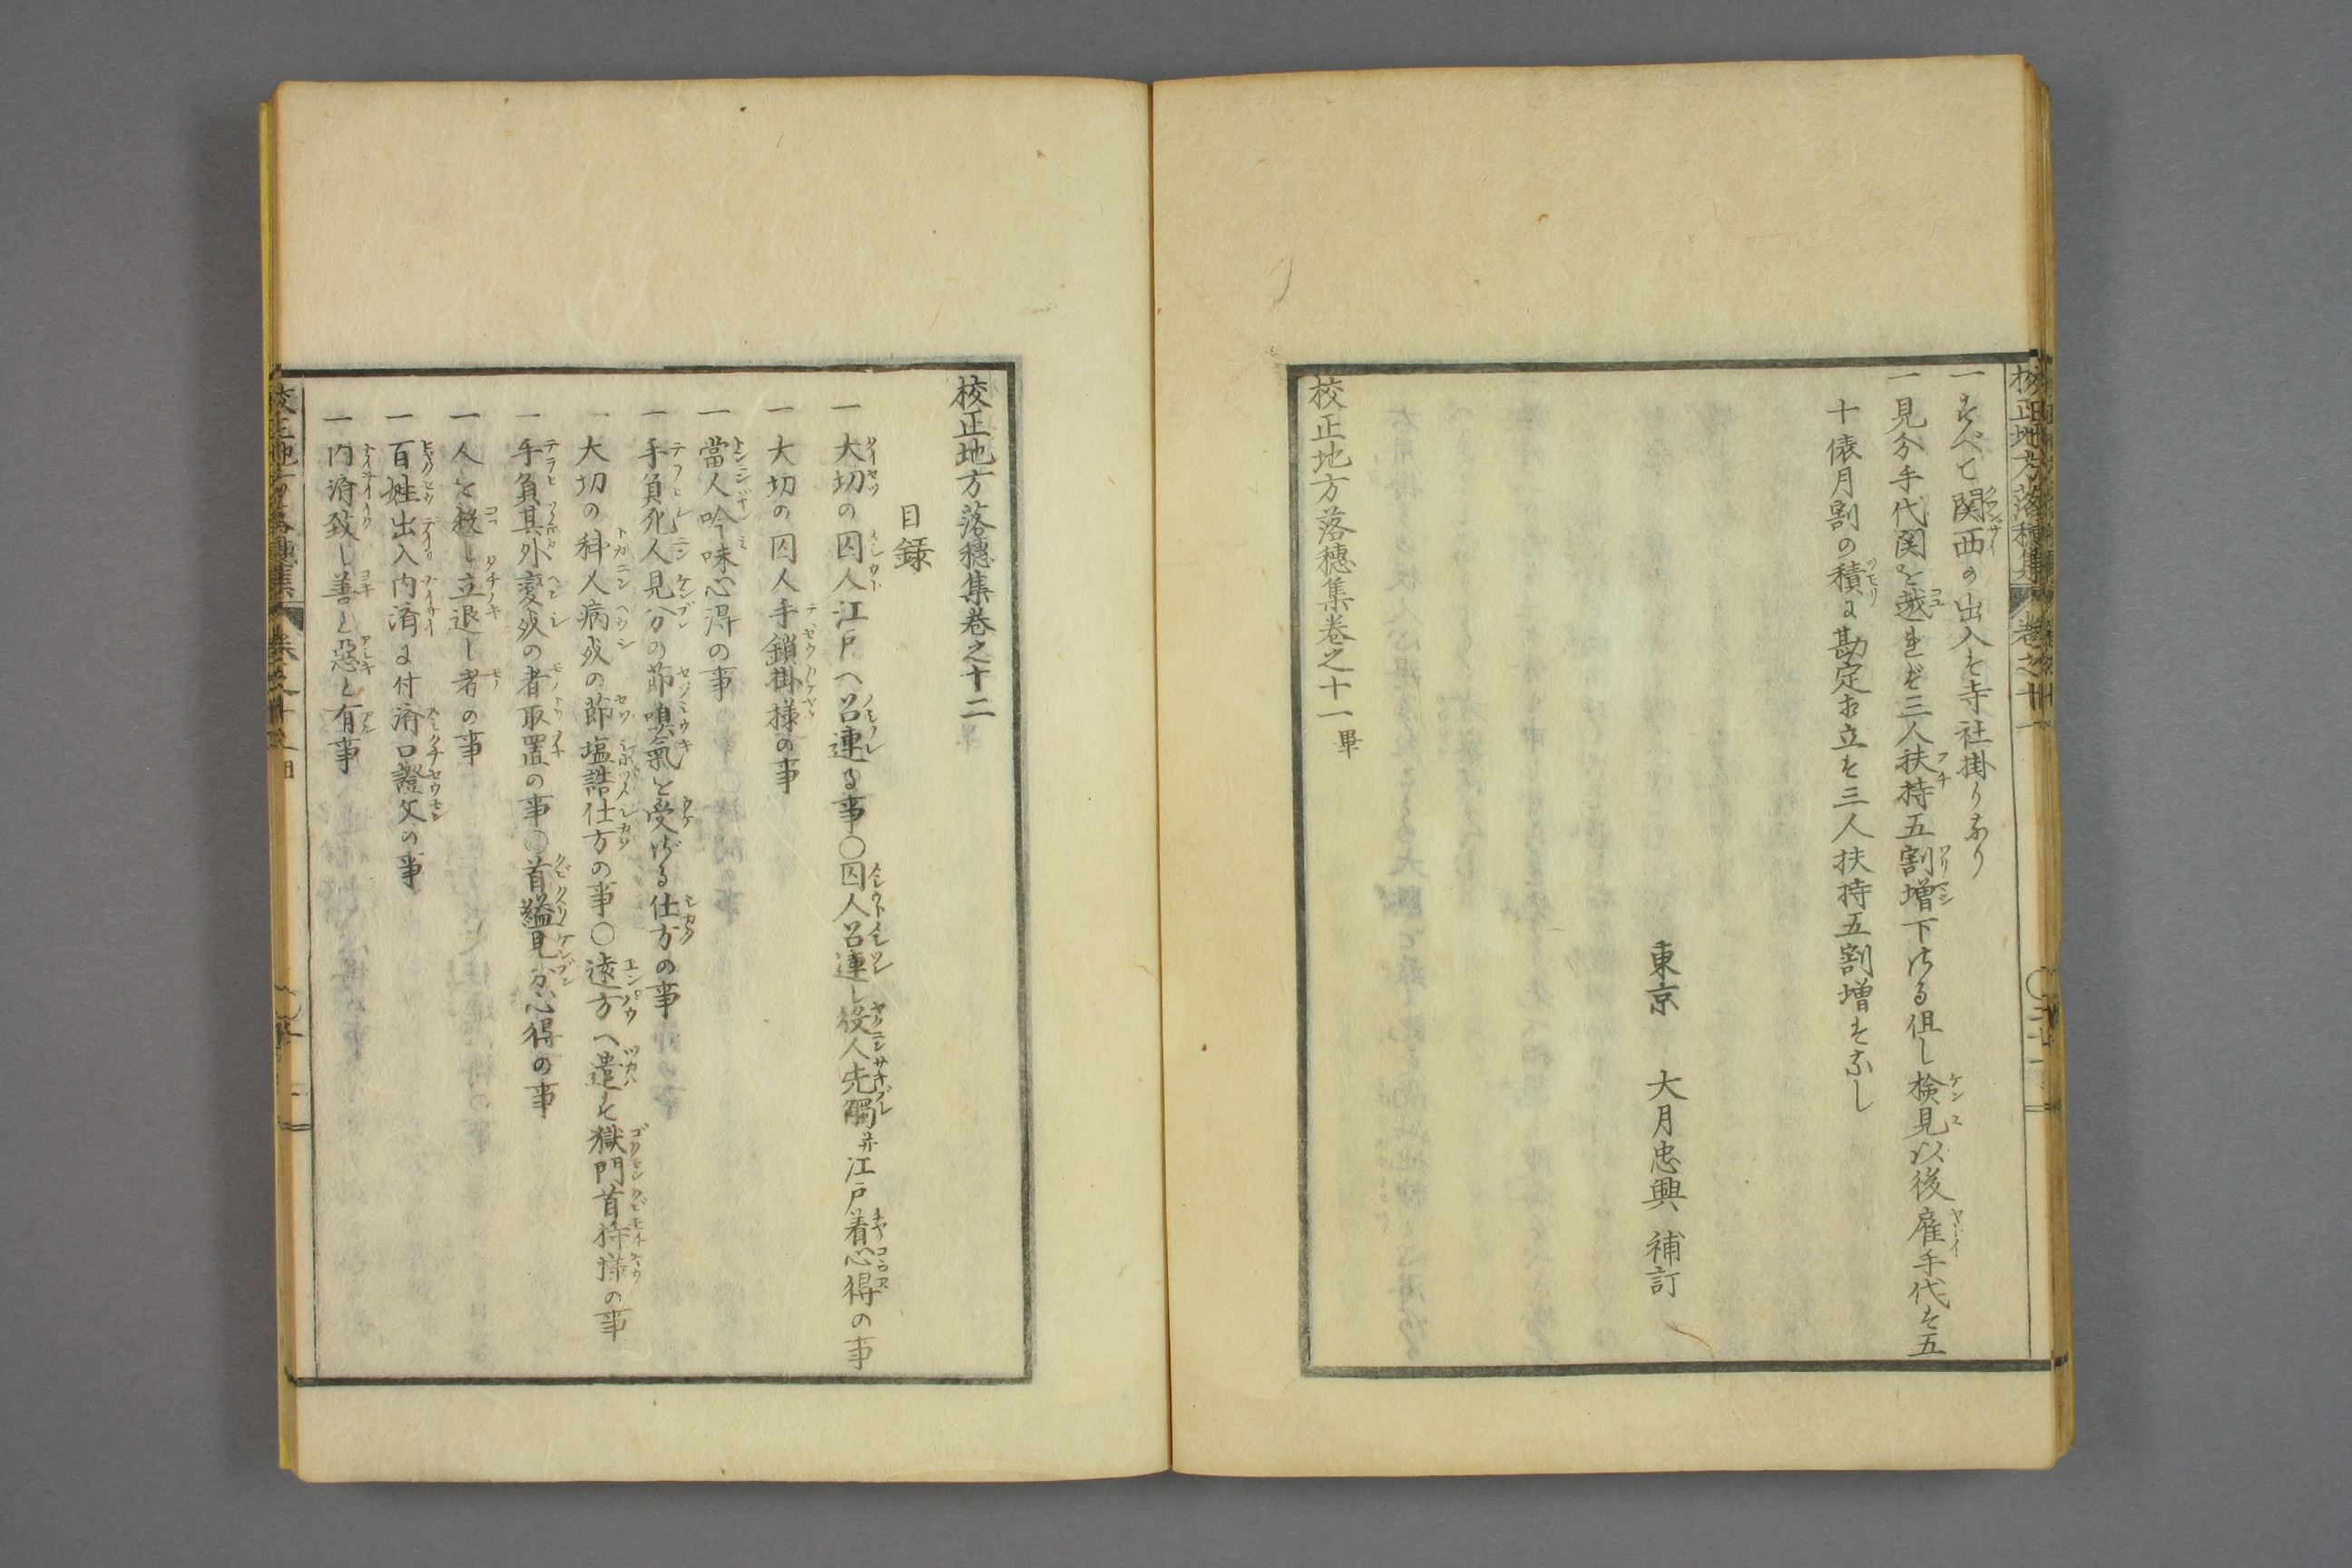 一すべて関西の出入も寺社掛りなり
一見分手代関を越れば三人扶持五割増下さる但し検見以後雇手代は五
十俵月割の積に勘定相立は三人扶持五割増はなし
東京 大月忠興 補訂
校正地方落穗集巻之十一畢
校正地方落穗集巻之十二
目録
一 大切の囚人江戸へ召連る事○囚人召連し役人先觸并江戸着心得の事
一 大切の囚人手鎖掛様の事
一 當人吟味心得の事
一 手負死人見分の節嗅氣を受ざる仕方の事
一 大切の科人病死の節塩詰仕方の事○遠方へ遣す獄門首持様の事
一 手負其外変死の者取置の事○首縊見分心得の事
一 人を殺し立退し者の事
一 百姓出入内済に付済口證文の事
一 内済致し善と惡と有事